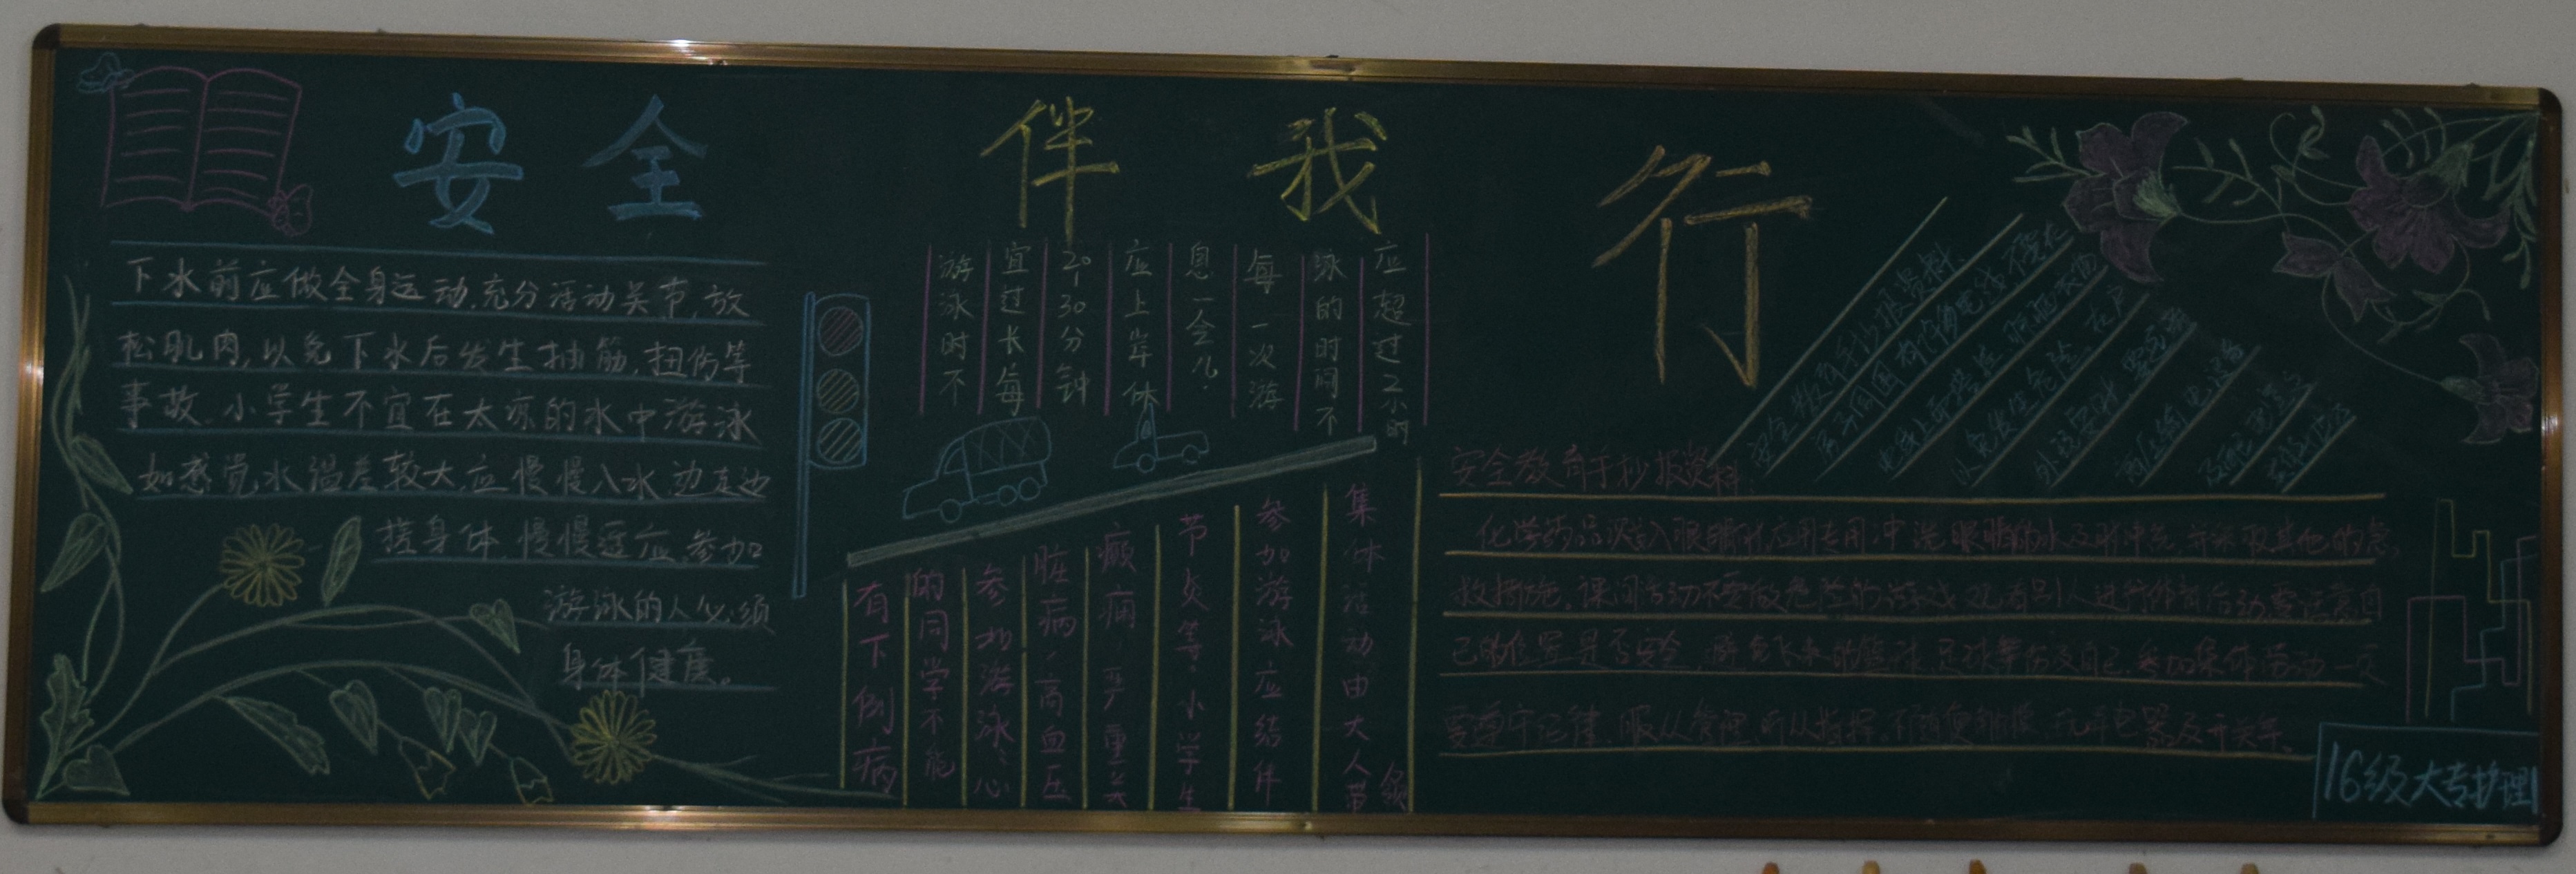 安全伴我行
下水前应做全身运动,充分活动关节,放
松肌肉,以免下水后发生抽筋,扭伤等
事故.小学生不宜在太凉的水中游泳
如感觉水温差较大,应慢慢入水,边走边
搓身体,慢慢适应.参加
游泳的人必须
身体健康。
游泳时不
宜过长每
20-30分钟
应上岸休
息一会儿.
每一次游
泳的时间不
应超过2小时
有下例病
的同学不能
参加游泳:心
脏病,高血压
癫痫,严重关
节炎等.小学生
参加游泳应结伴
集体活动由大人带领
安全教育手抄报资料.
安全教育手抄报资料:
化学药品溅入眼睛时,应用专用冲洗眼睛的水及时冲洗,并采取其他的急
救措施。课间活动不要做危险的游戏,观看别人进行体育活动要注意自
己的位置是否安全,避免飞来的篮球,足球等伤及自己.参加集体劳动一定
要遵守纪律,服从管理,听从指挥,不随便触摸,玩弄电器及开关等。
16级大专护理